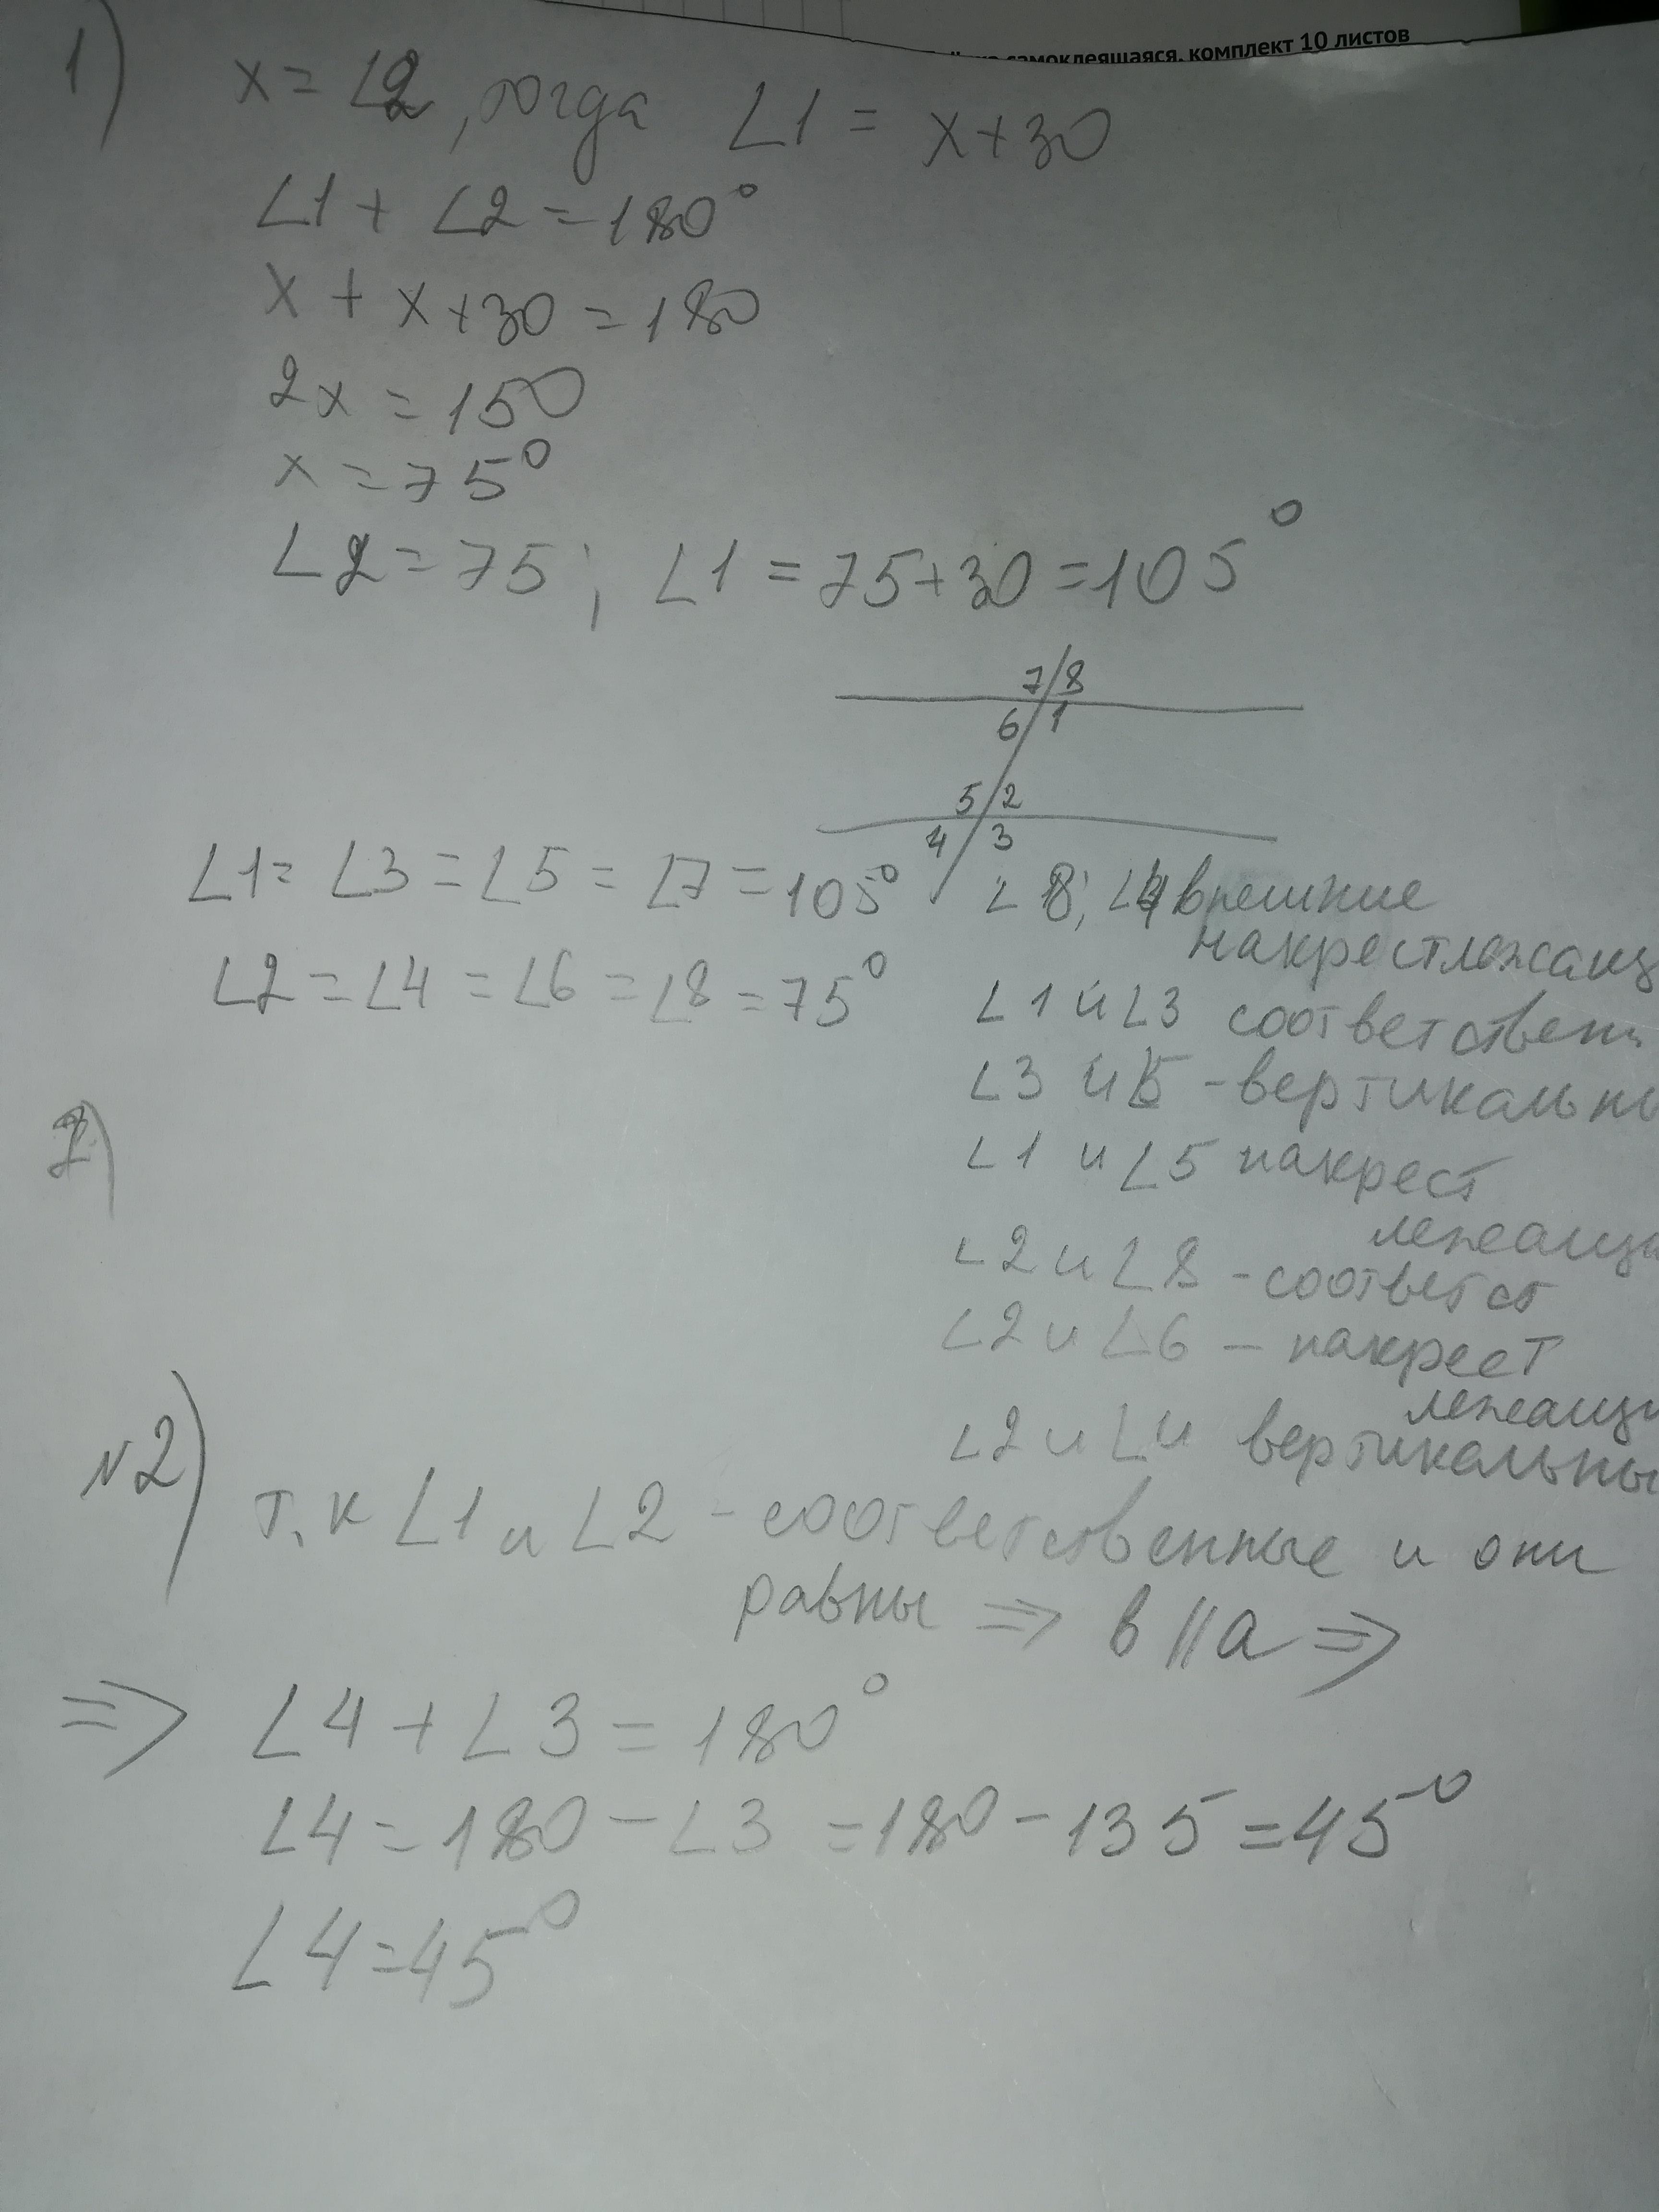 самоклеящаяся, комплект 10 листов
1) x = ∠2, тогда ∠1 = x+30
∠1 + ∠2 = 180°
x + x+30 = 180
2x = 150
x = 75°
∠2 = 75; ∠1 = 75+30 = 105°
7 8
6 1
5 2
4 3
∠1 = ∠3 = ∠5 = ∠7 = 105°
∠2 = ∠4 = ∠6 = ∠8 = 75°
∠8; ∠4 внешние
накрестлежащ
∠1 и ∠3 соответствен
∠3 и 5 - вертикальны
∠1 и ∠5 накрест
лежащи
∠2 и ∠8 - соответст
∠2 и ∠6 — накрест
лежащи
∠2 и ∠4 вертикальны
2)
№2) т.к ∠1 и ∠2 - соответственные и они
равны ⇒ в || а ⇒
⇒ ∠4 + ∠3 = 180°
∠4 = 180 - ∠3 = 180 - 135 = 45°
∠4 = 45°